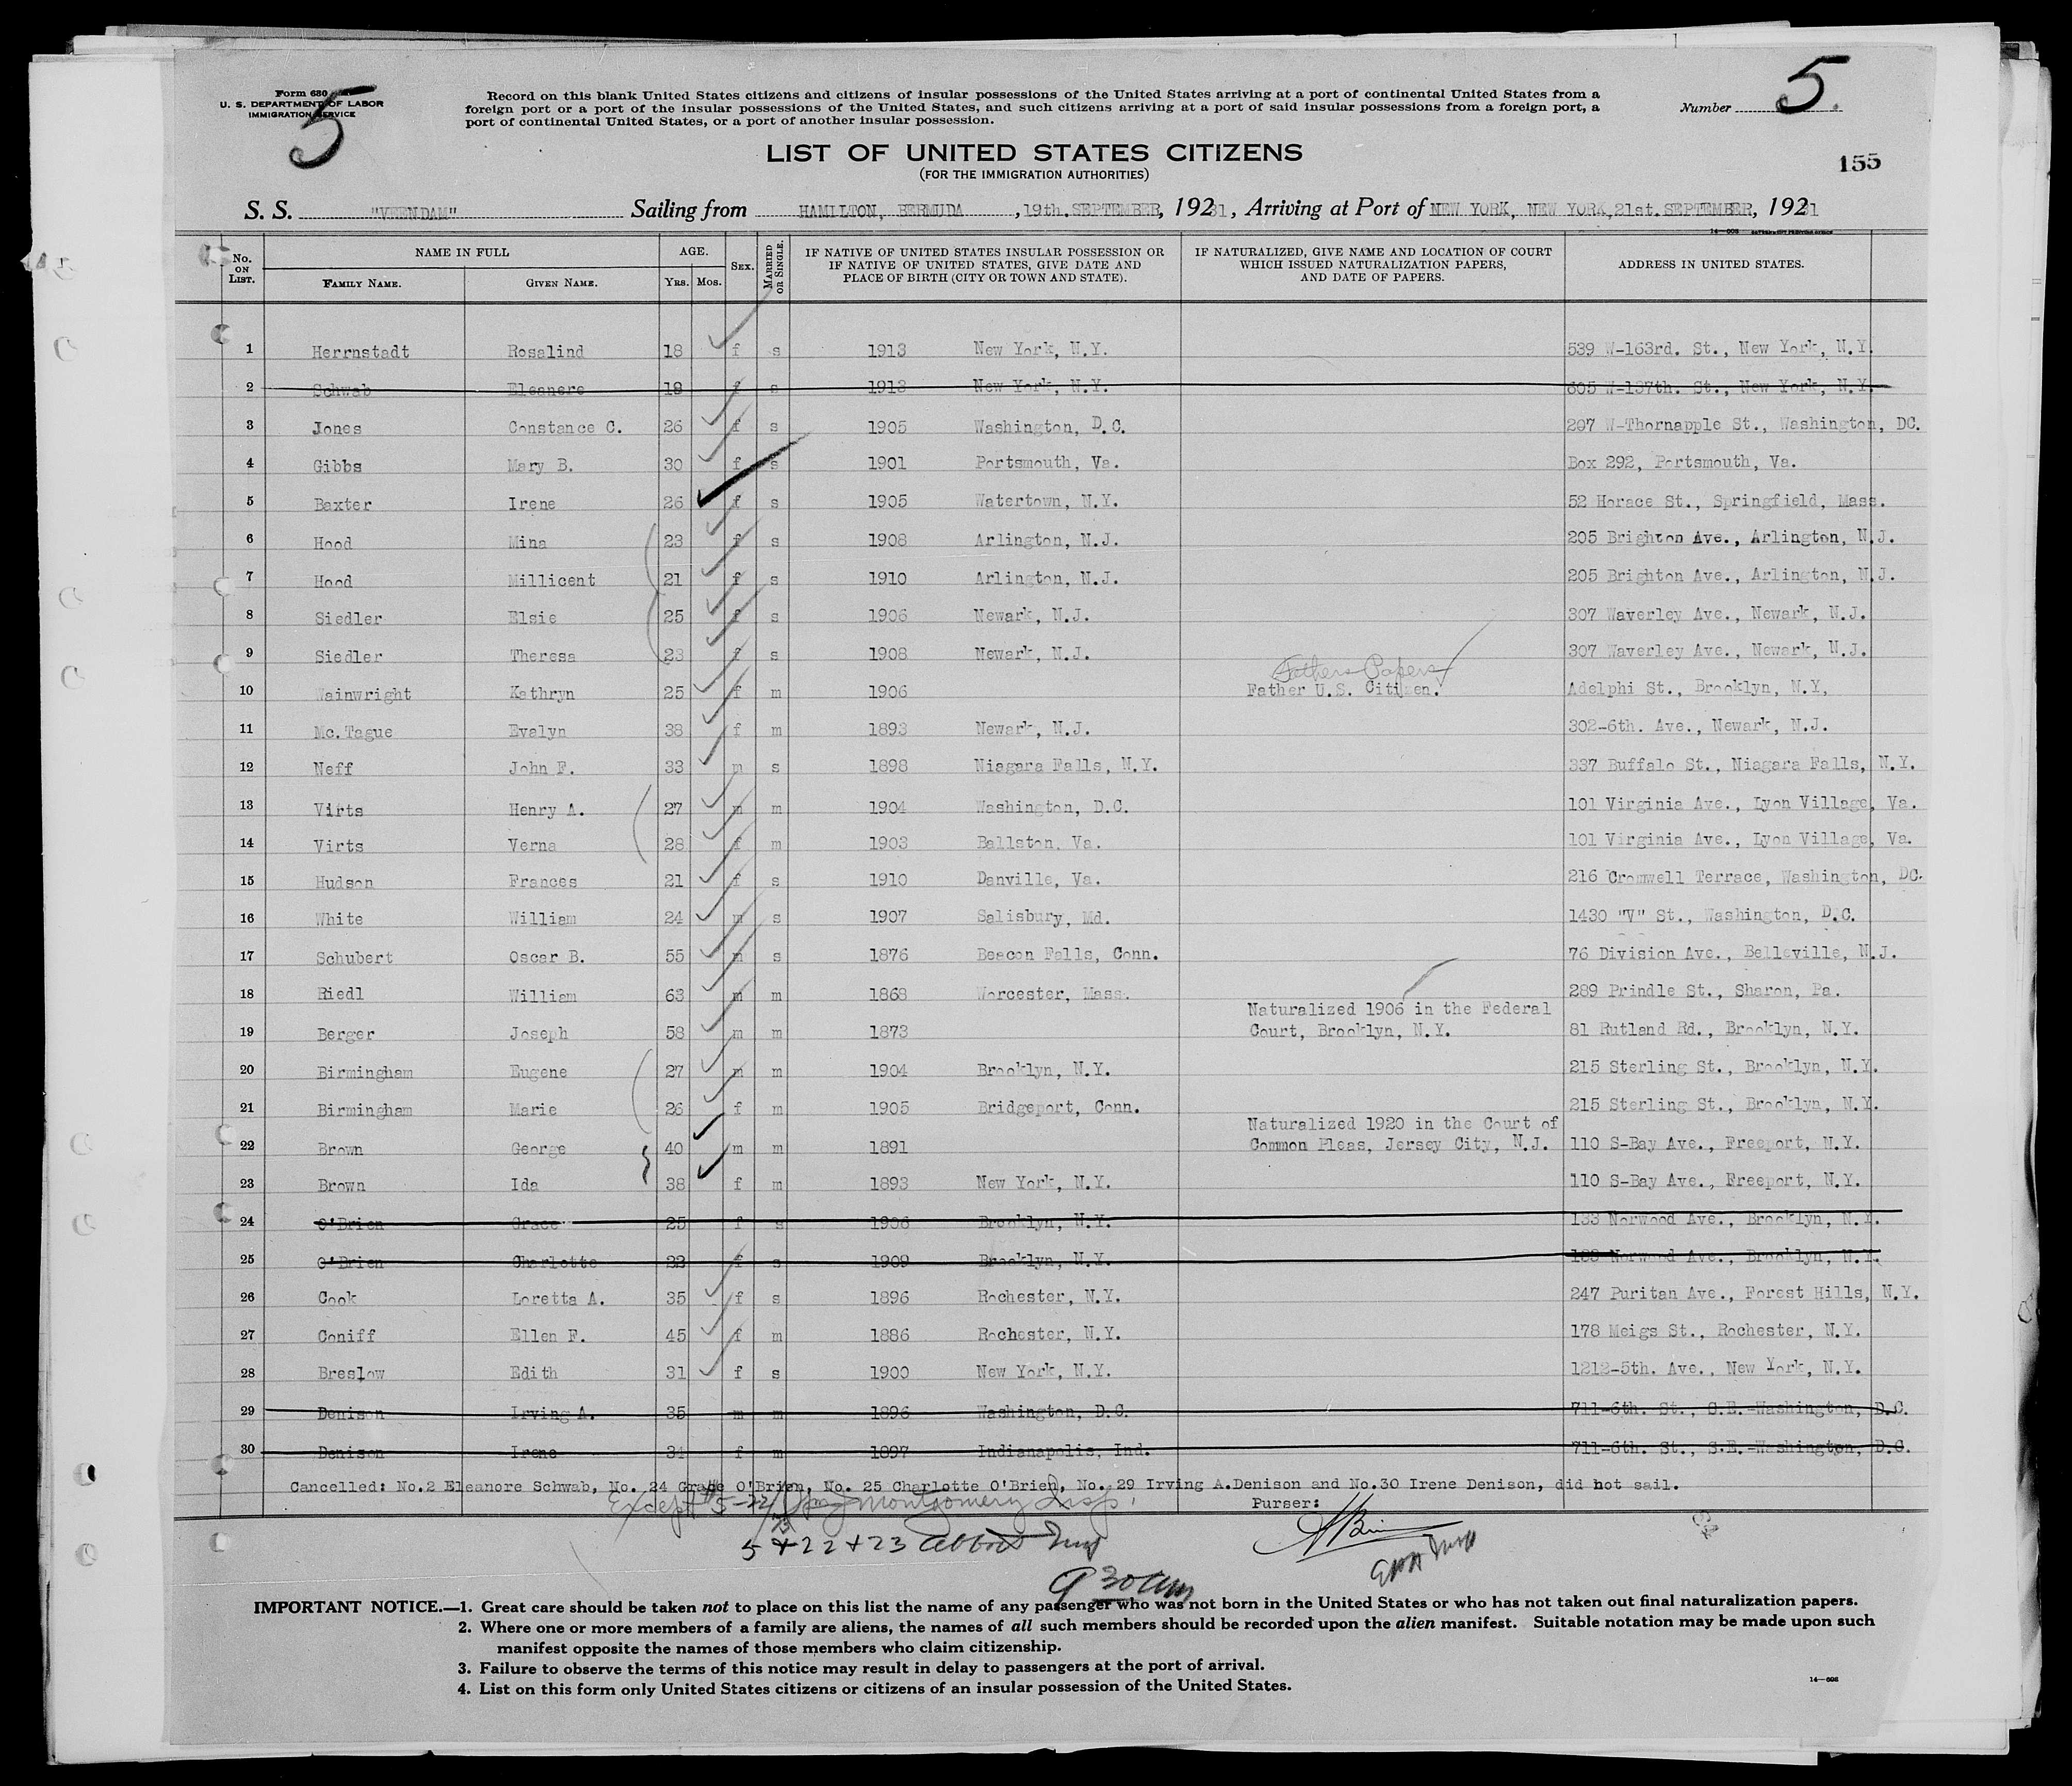 Form 680
U. S. DEPARTMENT OF LABOR
IMMIGRATION SERVICE
5
Record on this blank United States citizens and citizens of insular possessions of the United States arriving at a port of continental United States from a
foreign port or a port of the insular possessions of the United States, and such citizens arriving at a port of said insular possessions from a foreign port, a
port of continental United States, or a port of another insular possession.
Number 5.
LIST OF UNITED STATES CITIZENS
(FOR THE IMMIGRATION AUTHORITIES)
155
S. S. "VEENDAM" Sailing from HAMILTON, BERMUDA, 19th. SEPTEMBER, 1931, Arriving at Port of NEW YORK, NEW YORK, 21st. SEPTEMBER, 1931
No. ON LIST. NAME IN FULL FAMILY NAME. GIVEN NAME. AGE. YRS. MOS. SEX. MARRIED OR SINGLE. IF NATIVE OF UNITED STATES INSULAR POSSESSION OR IF NATIVE OF UNITED STATES, GIVE DATE AND PLACE OF BIRTH (CITY OR TOWN AND STATE). IF NATURALIZED, GIVE NAME AND LOCATION OF COURT WHICH ISSUED NATURALIZATION PAPERS, AND DATE OF PAPERS. ADDRESS IN UNITED STATES.
1 Herrnstadt Rosalind 18 f s 1913 New York, N.Y. 539 W-163rd. St., New York, N.Y.
2 Schwab Eleanore 19 f s 1913 New York, N.Y. 605 W-137th. St., New York, N.Y.
3 Jones Constance C. 26 f s 1905 Washington, D.C. 207 W-Thornapple St., Washington, DC.
4 Gibbs Mary B. 30 f s 1901 Portsmouth, Va. Box 292, Portsmouth, Va.
5 Baxter Irene 26 f s 1905 Watertown, N.Y. 52 Horace St., Springfield, Mass.
6 Hood Mina 23 f s 1908 Arlington, N.J. 205 Brighton Ave., Arlington, N.J.
7 Hood Millicent 21 f s 1910 Arlington, N.J. 205 Brighton Ave., Arlington, N.J.
8 Siedler Elsie 25 f s 1906 Newark, N.J. 307 Waverley Ave., Newark, N.J.
9 Siedler Theresa 23 f s 1908 Newark, N.J. 307 Waverley Ave., Newark, N.J.
Fathers Papers
10 Wainwright Kathryn 25 f m 1906 Father U.S. Citizen. Adelphi St., Brooklyn, N.Y,
11 Mc.Tague Evelyn 38 f m 1893 Newark, N.J. 302-6th. Ave., Newark, N.J.
12 Neff John F. 33 m s 1898 Niagara Falls, N.Y. 337 Buffalo St., Niagara Falls, N.Y.
13 Virts Henry A. 27 m m 1904 Washington, D.C. 101 Virginia Ave., Lyon Village, Va.
14 Virts Verna 28 f m 1903 Ballston, Va. 101 Virginia Ave., Lyon Village, Va.
15 Hudson Frances 21 f s 1910 Danville, Va. 216 Cromwell Terrace, Washington, DC.
16 White William 24 m s 1907 Salisbury, Md. 1430 "V" St., Washington, D.C.
17 Schubert Oscar B. 55 m s 1876 Beacon Falls, Conn. 76 Division Ave., Belleville, N.J.
18 Riedl William 63 m m 1868 Worcester, Mass. 289 Prindle St., Sharon, Pa.
Naturalized 1906 in the Federal
19 Berger Joseph 58 m m 1873 Court, Brooklyn, N.Y. 81 Rutland Rd., Brooklyn, N.Y.
20 Birmingham Eugene 27 m m 1904 Brooklyn, N.Y. 215 Sterling St., Brooklyn, N.Y.
21 Birmingham Marie 26 f m 1905 Bridgeport, Conn. 215 Sterling St., Brooklyn, N.Y.
Naturalized 1920 in the Court of
22 Brown George 40 m m 1891 Common Pleas, Jersey City, N.J. 110 S-Bay Ave., Freeport, N.Y.
23 Brown Ida 38 f m 1893 New York, N.Y. 110 S-Bay Ave., Freeport, N.Y.
24 O'Brien Grace 25 f s 1906 Brooklyn, N.Y. 133 Norwood Ave., Brooklyn, N.Y.
25 O'Brien Charlotte 22 f s 1909 Brooklyn, N.Y. 133 Norwood Ave., Brooklyn, N.Y.
26 Cook Loretta A. 35 f s 1896 Rochester, N.Y. 247 Puritan Ave., Forest Hills, N.Y.
27 Coniff Ellen F. 45 f m 1886 Rochester, N.Y. 178 Meigs St., Rochester, N.Y.
28 Breslow Edith 31 f s 1900 New York, N.Y. 1212-5th. Ave., New York, N.Y.
29 Denison Irving A. 35 m m 1896 Washington, D.C. 711-6th. St., S.E.-Washington, D.C.
30 Denison Irene 34 f m 1897 Indianapolis, Ind. 711-6th. St., S.E.-Washington, D.C.
Cancelled: No.2 Eleanore Schwab, No. 24 Grace O'Brien, No. 25 Charlotte O'Brien, No. 29 Irving A.Denison and No.30 Irene Denison, did not sail.
Except #5-22/23 Montgomery Insp.
Purser:
5 + 22 + 23 Abbott Insp
9 30 am
IMPORTANT NOTICE.—1. Great care should be taken not to place on this list the name of any passenger who was not born in the United States or who has not taken out final naturalization papers.
2. Where one or more members of a family are aliens, the names of all such members should be recorded upon the alien manifest. Suitable notation may be made upon such
manifest opposite the names of those members who claim citizenship.
3. Failure to observe the terms of this notice may result in delay to passengers at the port of arrival.
4. List on this form only United States citizens or citizens of an insular possession of the United States.
14—608